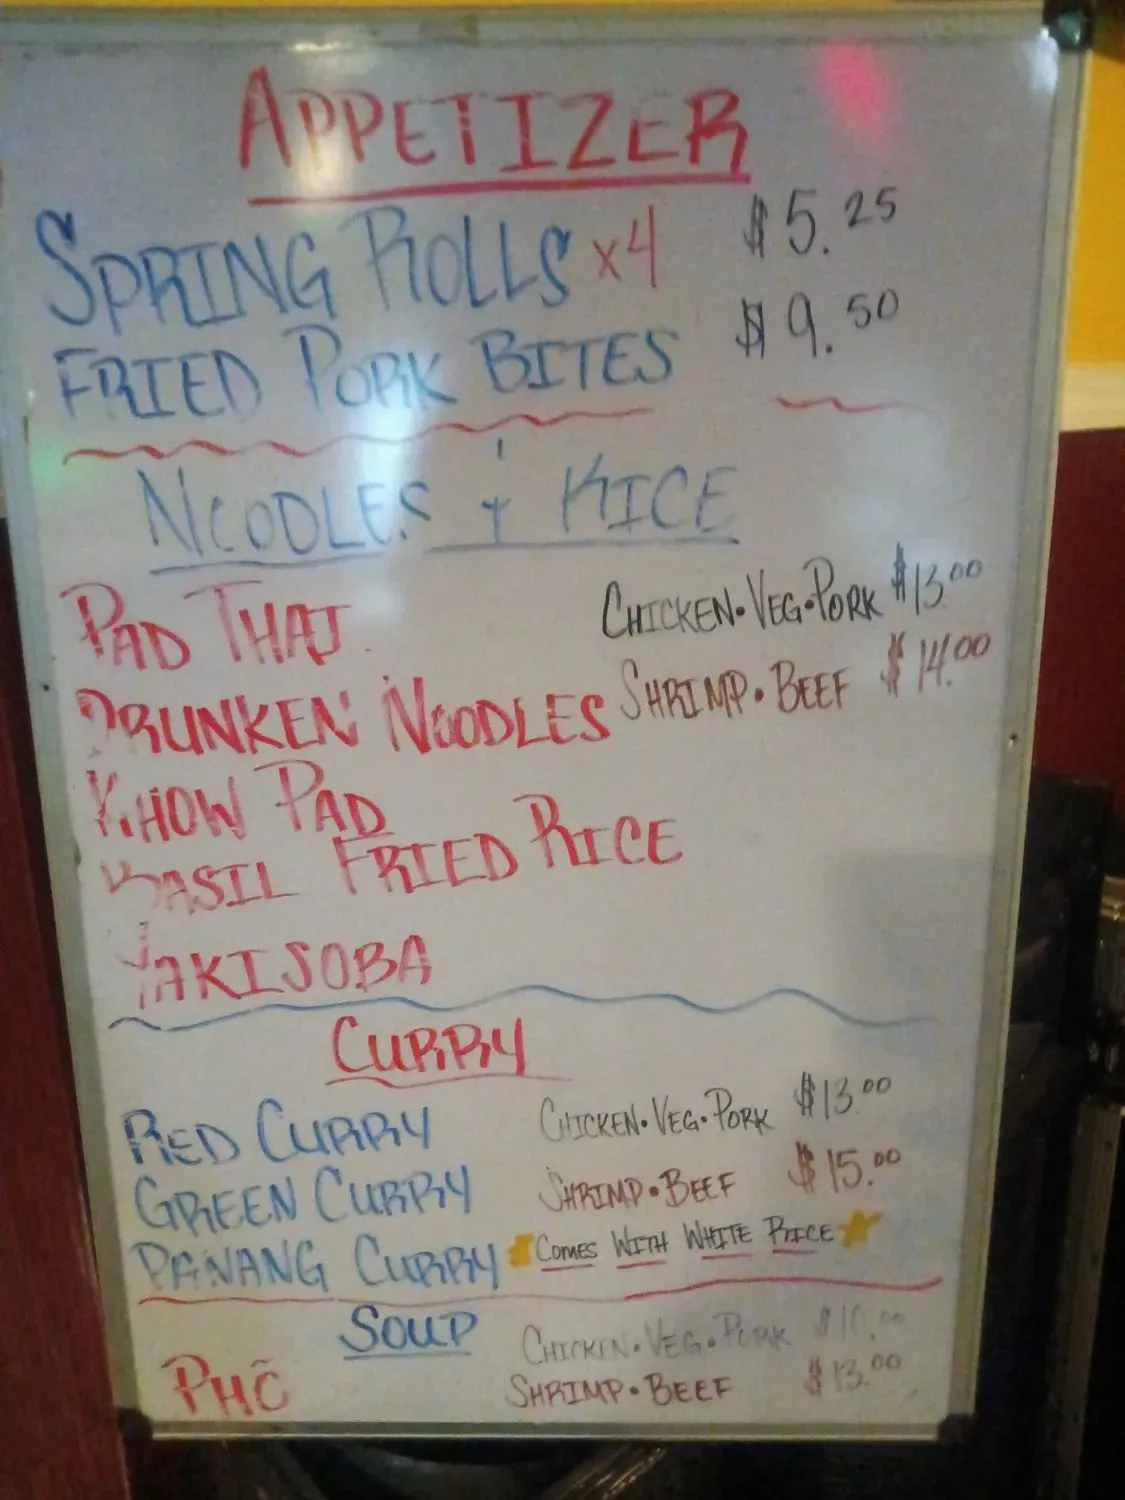 APPETIZER
SPRING ROLLS x4 $5.25
FRIED PORK BITES $9.50
NOODLES & RICE
PAD THAI CHICKEN•VEG•PORK $13.00
DRUNKEN NOODLES SHRIMP•BEEF $14.00
KHOW PAD
BASIL FRIED RICE
YAKISOBA
CURRY
RED CURRY CHICKEN•VEG•PORK $13.00
GREEN CURRY SHRIMP•BEEF $15.00
PANANG CURRY COMES WITH WHITE RICE
SOUP CHICKEN•VEG•PORK
PHÕ SHRIMP•BEEF $13.00